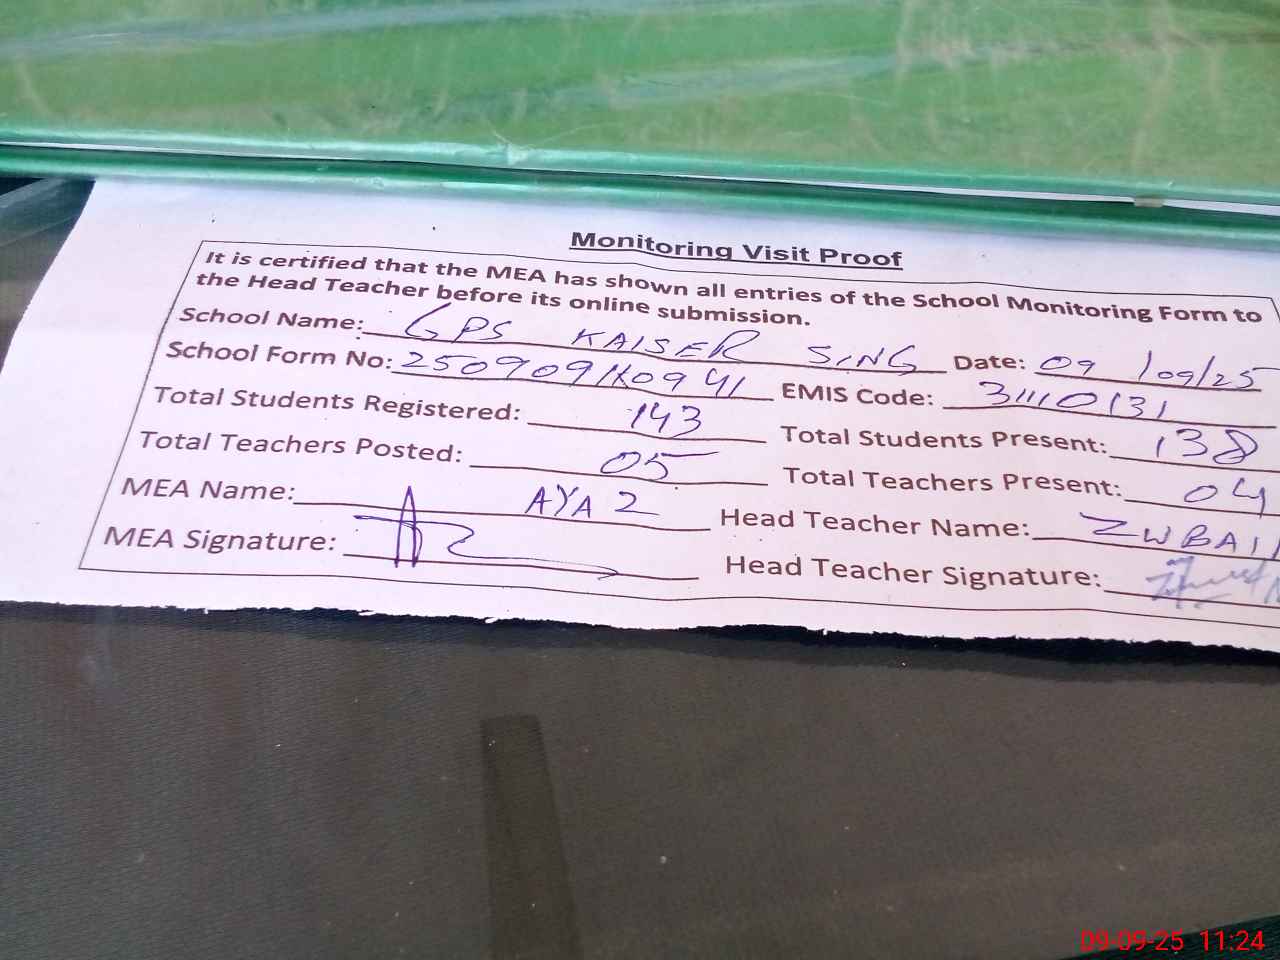 Monitoring Visit Proof
It is certified that the MEA has shown all entries of the School Monitoring Form to
the Head Teacher before its online submission.
School Name: GPS KAISER SING Date: 09/09/25
School Form No: EMIS Code: 31110131
Total Students Registered: 143 Total Students Present: 138
Total Teachers Posted: 05 Total Teachers Present: 04
MEA Name: AYAZ Head Teacher Name:
MEA Signature: Head Teacher Signature:
09-09-25 11:24